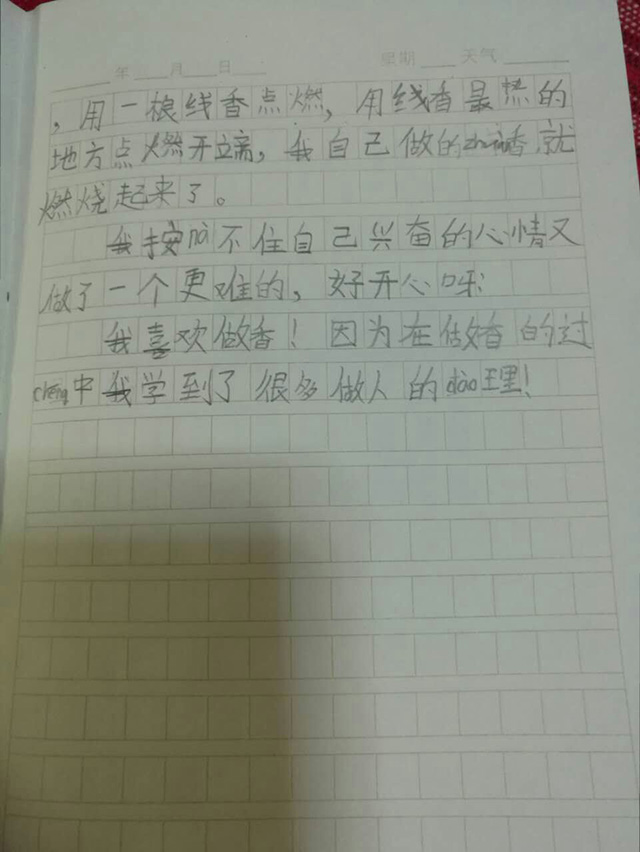 年 月 日 星期 天气
，用一根线香点燃，用线香最热的
地方点燃开端，我自己做的zhuan香就
燃烧起来了。
我按na不住自己兴奋的心情又
做了一个更难的，好开心呀
我喜欢做香！因为在做香的过
cheng中我学到了很多做人的dao理！